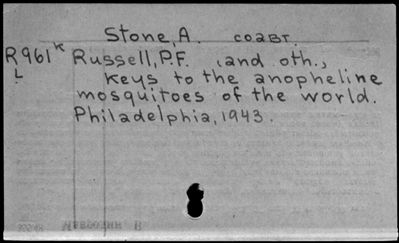 Stone, A. соавт.
R961k Russell, P.F. (and oth.,
L keys to the anopheline
mosquitoes of the world.
Philadelphia, 1943.